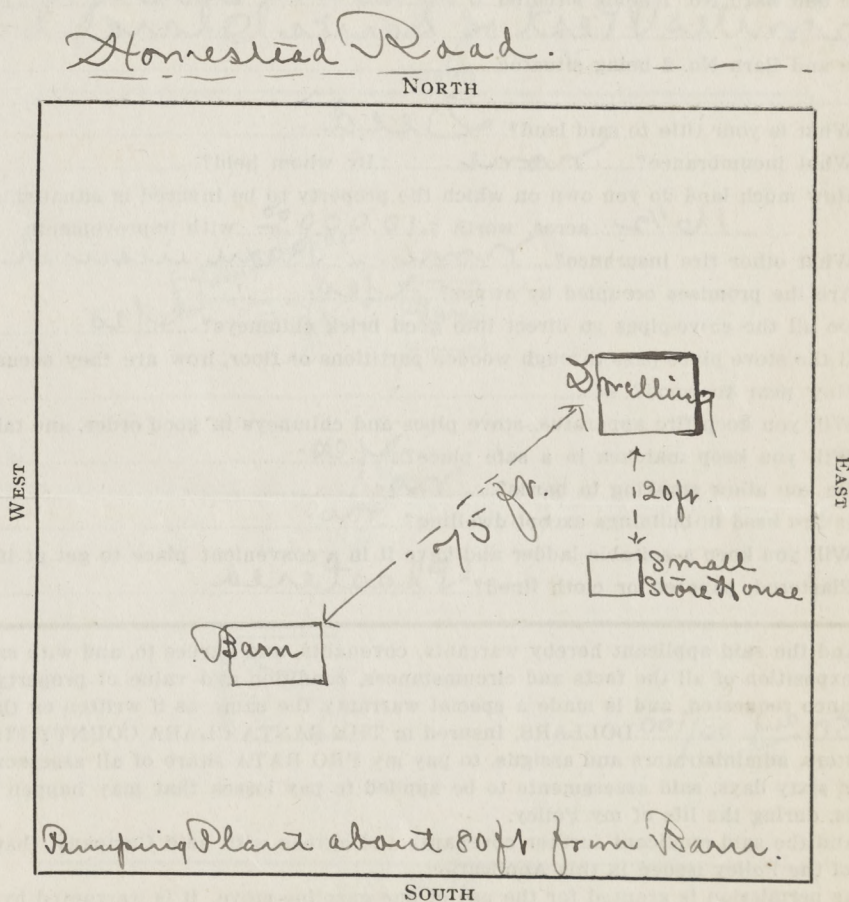 Homestead Road.
NORTH
WEST
EAST
Dwelling
75 ft.
20ft
Small
Store House
Barn
Pumping Plant about 80ft from Barn.
SOUTH